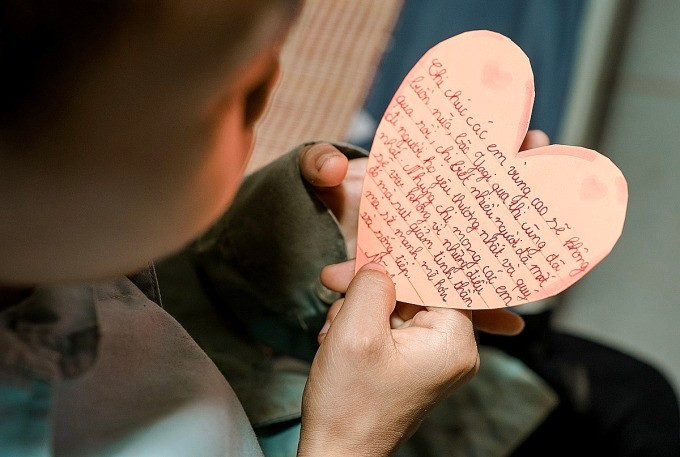 Chị chúc các em vùng cao sẽ không
buồn nữa bão Yagi qua thì cũng đã
qua rồi, chị biết nhiều người đã
đi người họ yêu thương nhất và quý
nhất. Nhưng chị mong các em
sẽ không vì nhiều điều
đó mà suy giảm tinh thần
mà sẽ mạnh mẽ hơn
và sống tiếp